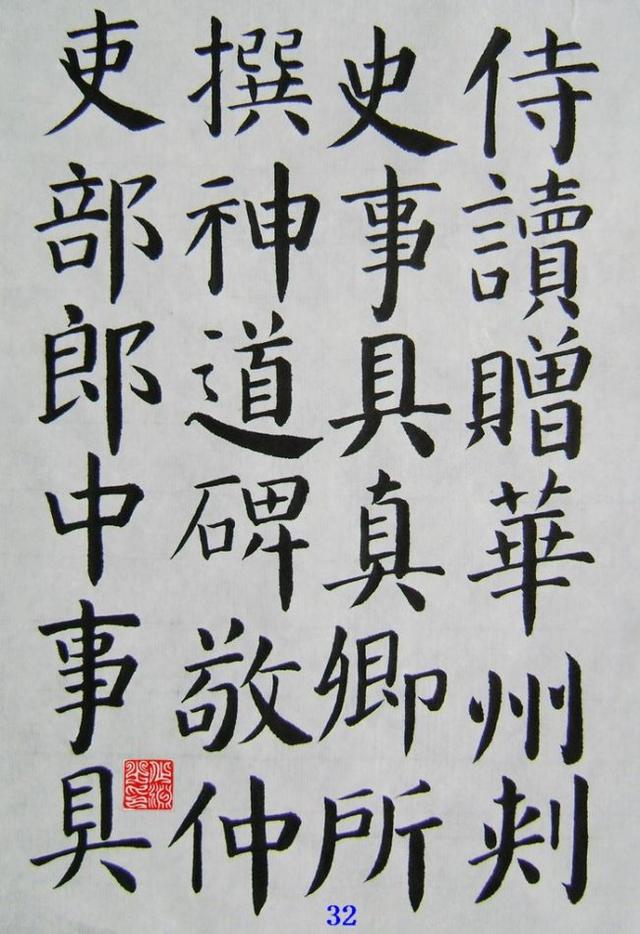 侍讀贈華州刺
史事具真卿所
撰神道碑敬仲
吏部郎中事具
32